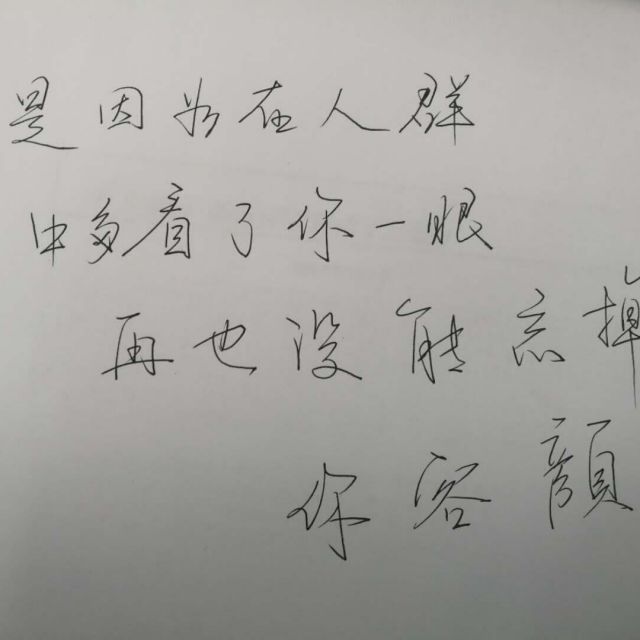 是因为在人群
中多看了你一眼
再也没能忘掉
你容顔